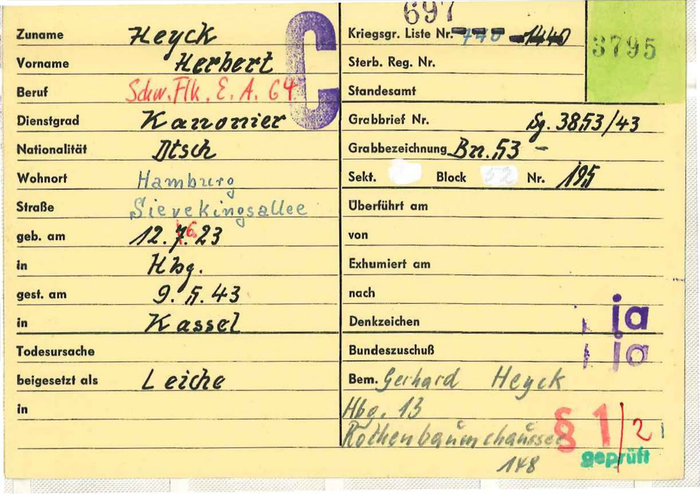 Zuname Heyck
Vorname Herbert
Beruf Schw. Flk. E. A. 64
Dienstgrad Kanonier
Nationalität Dtsch
Wohnort Hamburg
Straße Sievekingsallee
geb. am 12. 6. 23
in Hbg.
gest. am 9. 5. 43
in Kassel
Todesursache
beigesetzt als Leiche
in
C
697
Kriegsgr. Liste Nr. 1440
3795
Sterb. Reg. Nr.
Standesamt
Grabbrief Nr. Sg. 3853/43
Grabbezeichnung Bn. 53 -
Sekt. Block 52 Nr. 195
Überführt am
von
Exhumiert am
nach
Denkzeichen ja
Bundeszuschuß ja
Bem. Gerhard Heyck
Hbg. 13
Rothenbaumchaussee
148
§ 1/2
geprüft